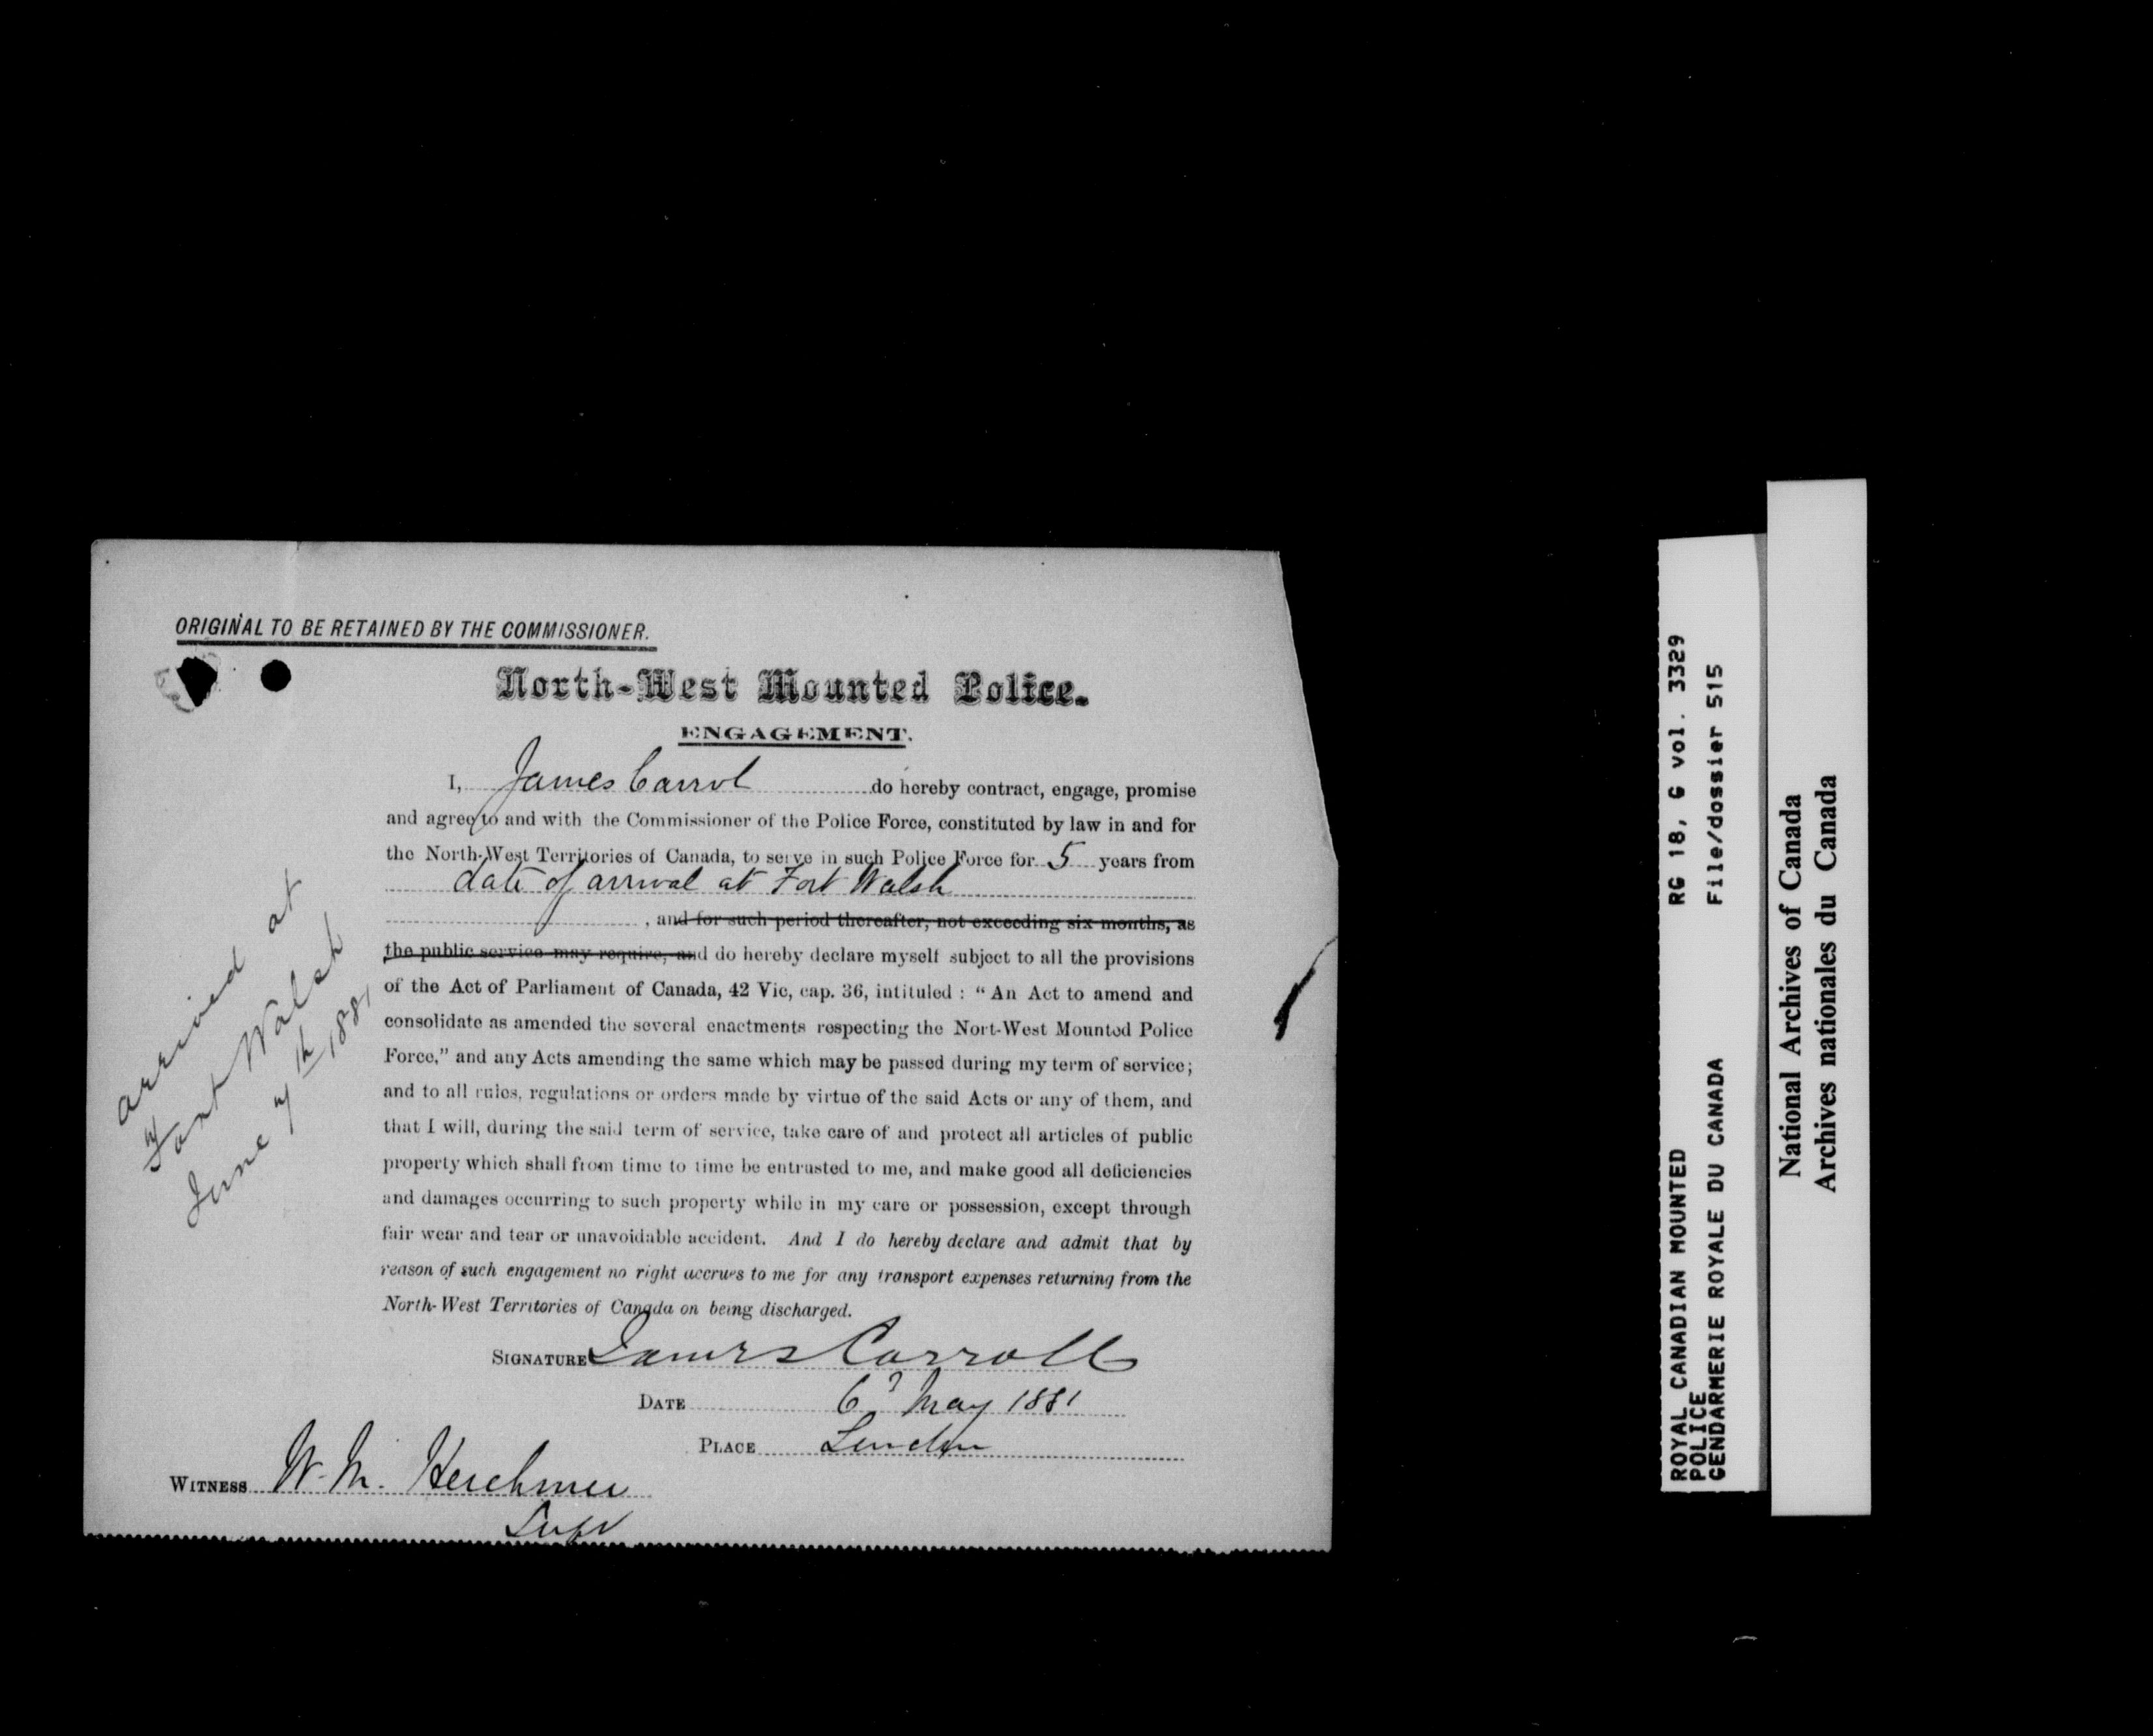 ORIGINAL TO BE RETAINED BY THE COMMISSIONER.
North-West Mounted Police.
ENGAGEMENT.
I, James Carrol do hereby contract, engage, promise
and agree to and with the Commissioner of the Police Force, constituted by law in and for
the North-West Territories of Canada, to serve in such Police Force for 5 years from
date of arrival at Fort Walsh
, and for such period thereafter, not exceeding six months, as
the public service may require, and do hereby declare myself subject to all the provisions
of the Act of Parliament of Canada, 42 Vic, cap. 36, intituled : “ An Act to amend and
consolidate as amended the several enactments respecting the Nort-West Mounted Police
Force,” and any Acts amending the same which may be passed during my term of service;
and to all rules, regulations or orders made by virtue of the said Acts or any of them, and
that I will, during the said term of service, take care of and protect all articles of public
property which shall from time to time be entrusted to me, and make good all deficiencies
and damages occurring to such property while in my care or possession, except through
fair wear and tear or unavoidable accident. And I do hereby declare and admit that by
reason of such engagement no right accrues to me for any transport expenses returning from the
North-West Territories of Canada on being discharged.
SIGNATURE James Carroll
DATE 6 May 1881
PLACE London
WITNESS W. M. Herchmer
Supt
arrived at
Fort Walsh
June 7th 1881
ROYAL CANADIAN MOUNTED RG 18, G vol. 3329
POLICE
GENDARMERIE ROYALE DU CANADA File/dossier 515
National Archives of Canada
Archives nationales du Canada